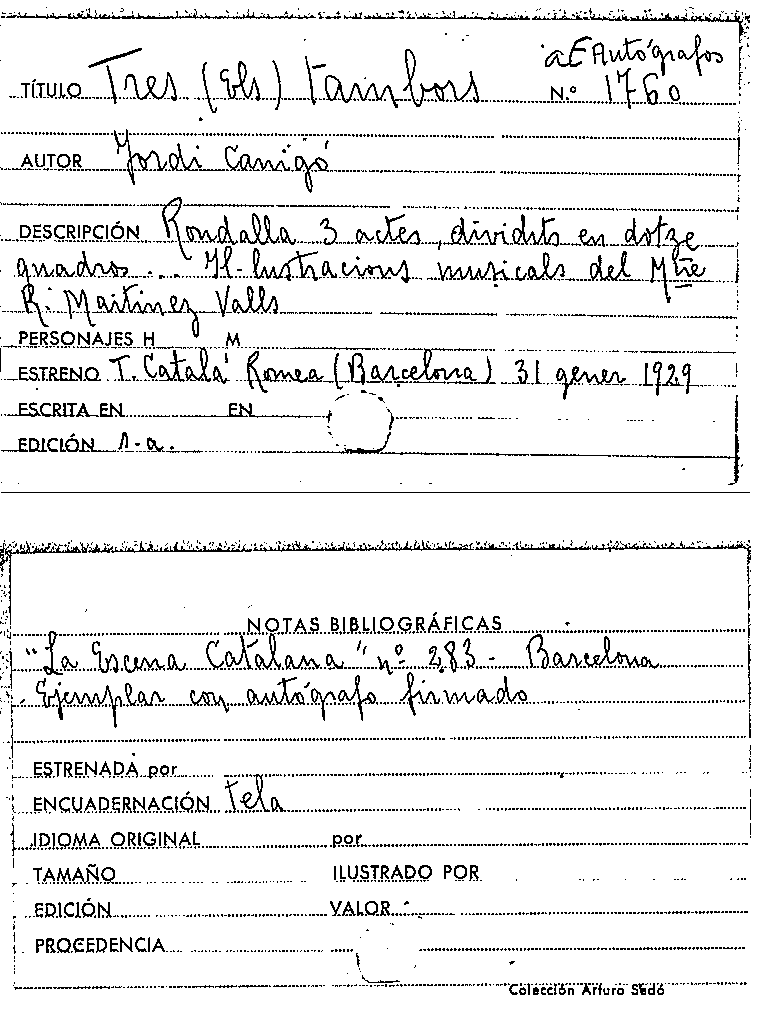 aE Autógrafos
TÍTULO Tres (Els) tambors N.º 1760
AUTOR Jordi Canigó
DESCRIPCIÓN Rondalla 3 actes, dividits en dotze
quadros ... Il-lustracions musicals del Mtre
R. Martinez Valls
PERSONAJES H M
ESTRENO T. Catalá Romea (Barcelona) 31 gener 1929
ESCRITA EN EN
EDICIÓN 1-a.
NOTAS BIBLIOGRÁFICAS
"La Escena Catalana" nº 283 - Barcelona
Ejemplar con autógrafo firmado
ESTRENADA por
ENCUADERNACIÓN tela
IDIOMA ORIGINAL por
TAMAÑO ILUSTRADO POR
EDICIÓN VALOR
PROCEDENCIA
Colección Arturo Sedó